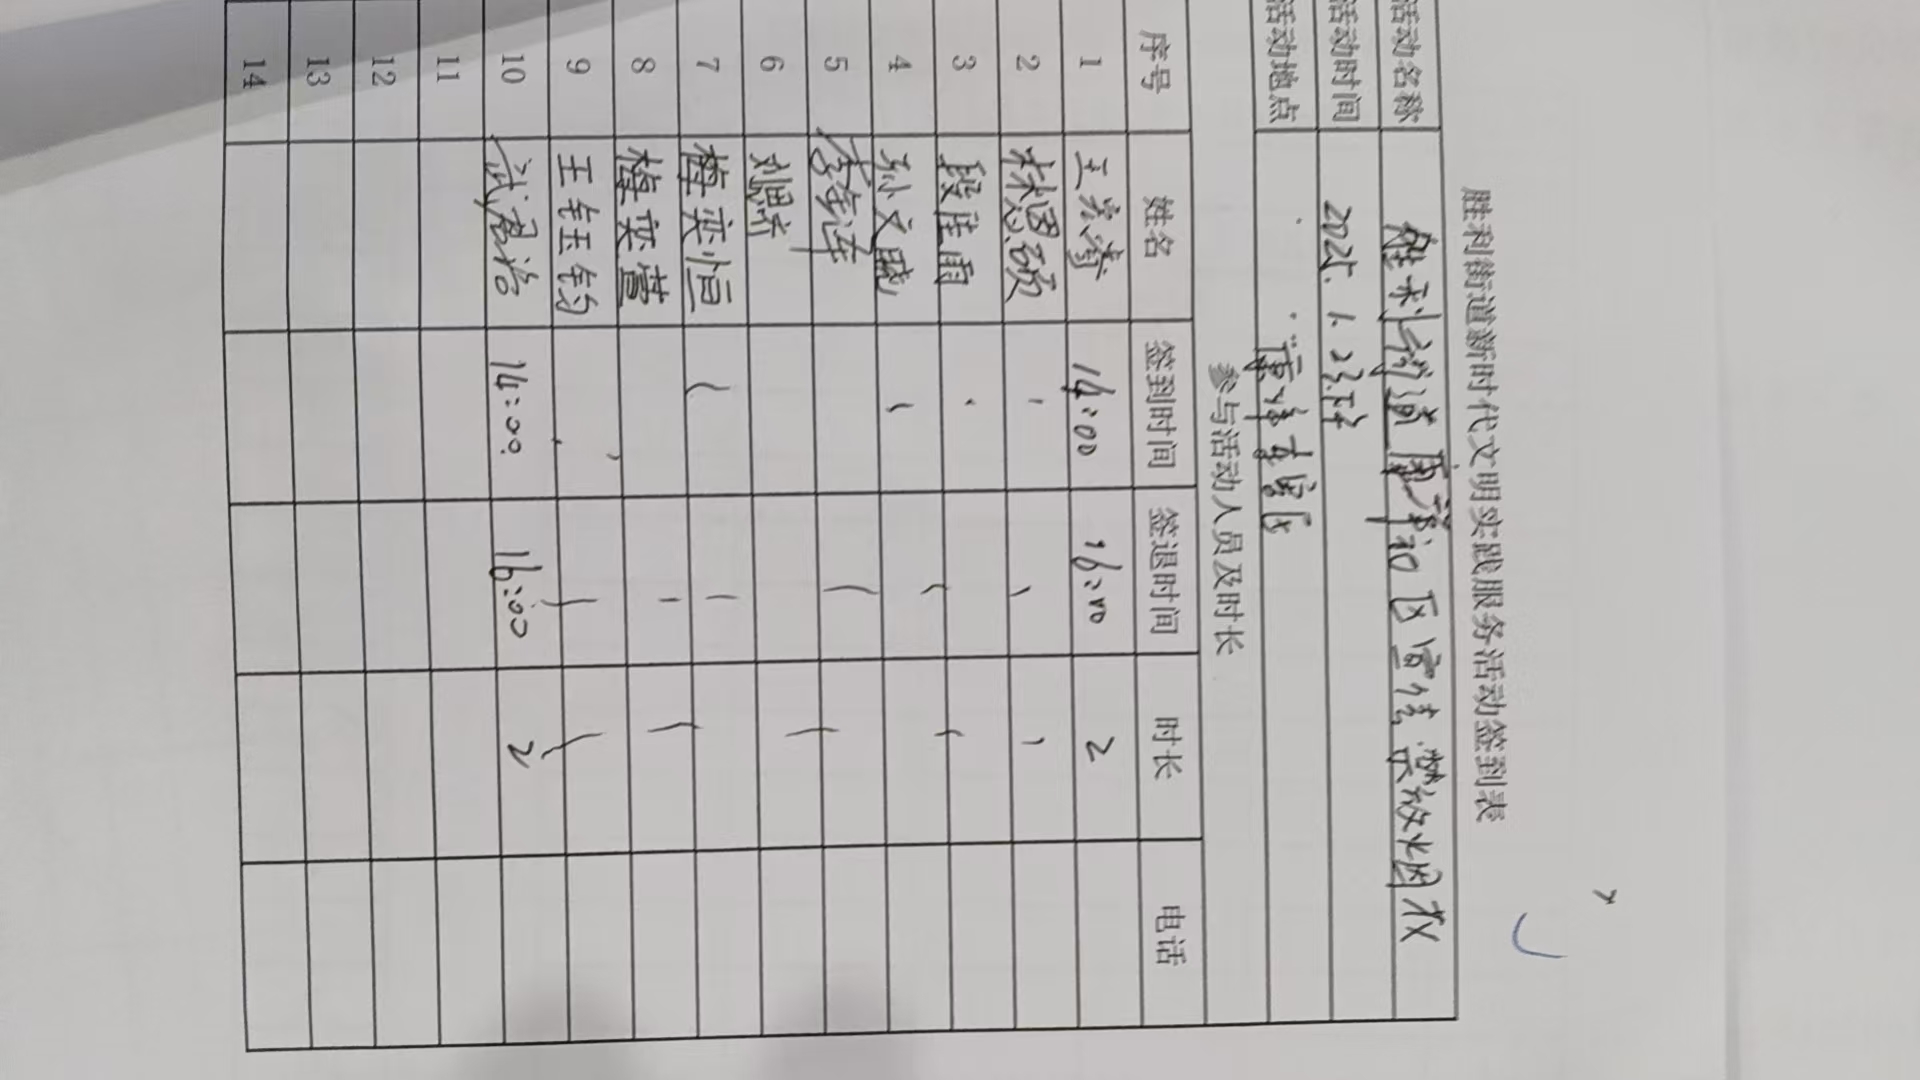 胜利街道新时代文明实践服务活动签到表
活动名称 胜利街道康宁社区宣传禁放烟花
活动时间 2025.1.23
活动地点
参与活动人员及时长
序号 姓名 签到时间 签退时间 时长 电话
1 王 14:00 16:00 2
2 林思颀
3 段佳雨
4 孙文曦
5 李金泽
6 刘思乔
7 梅奕恒
8 梅奕萱
9 王钰钧
10 武君浩 14:00 16:00 2
11
12
13
14